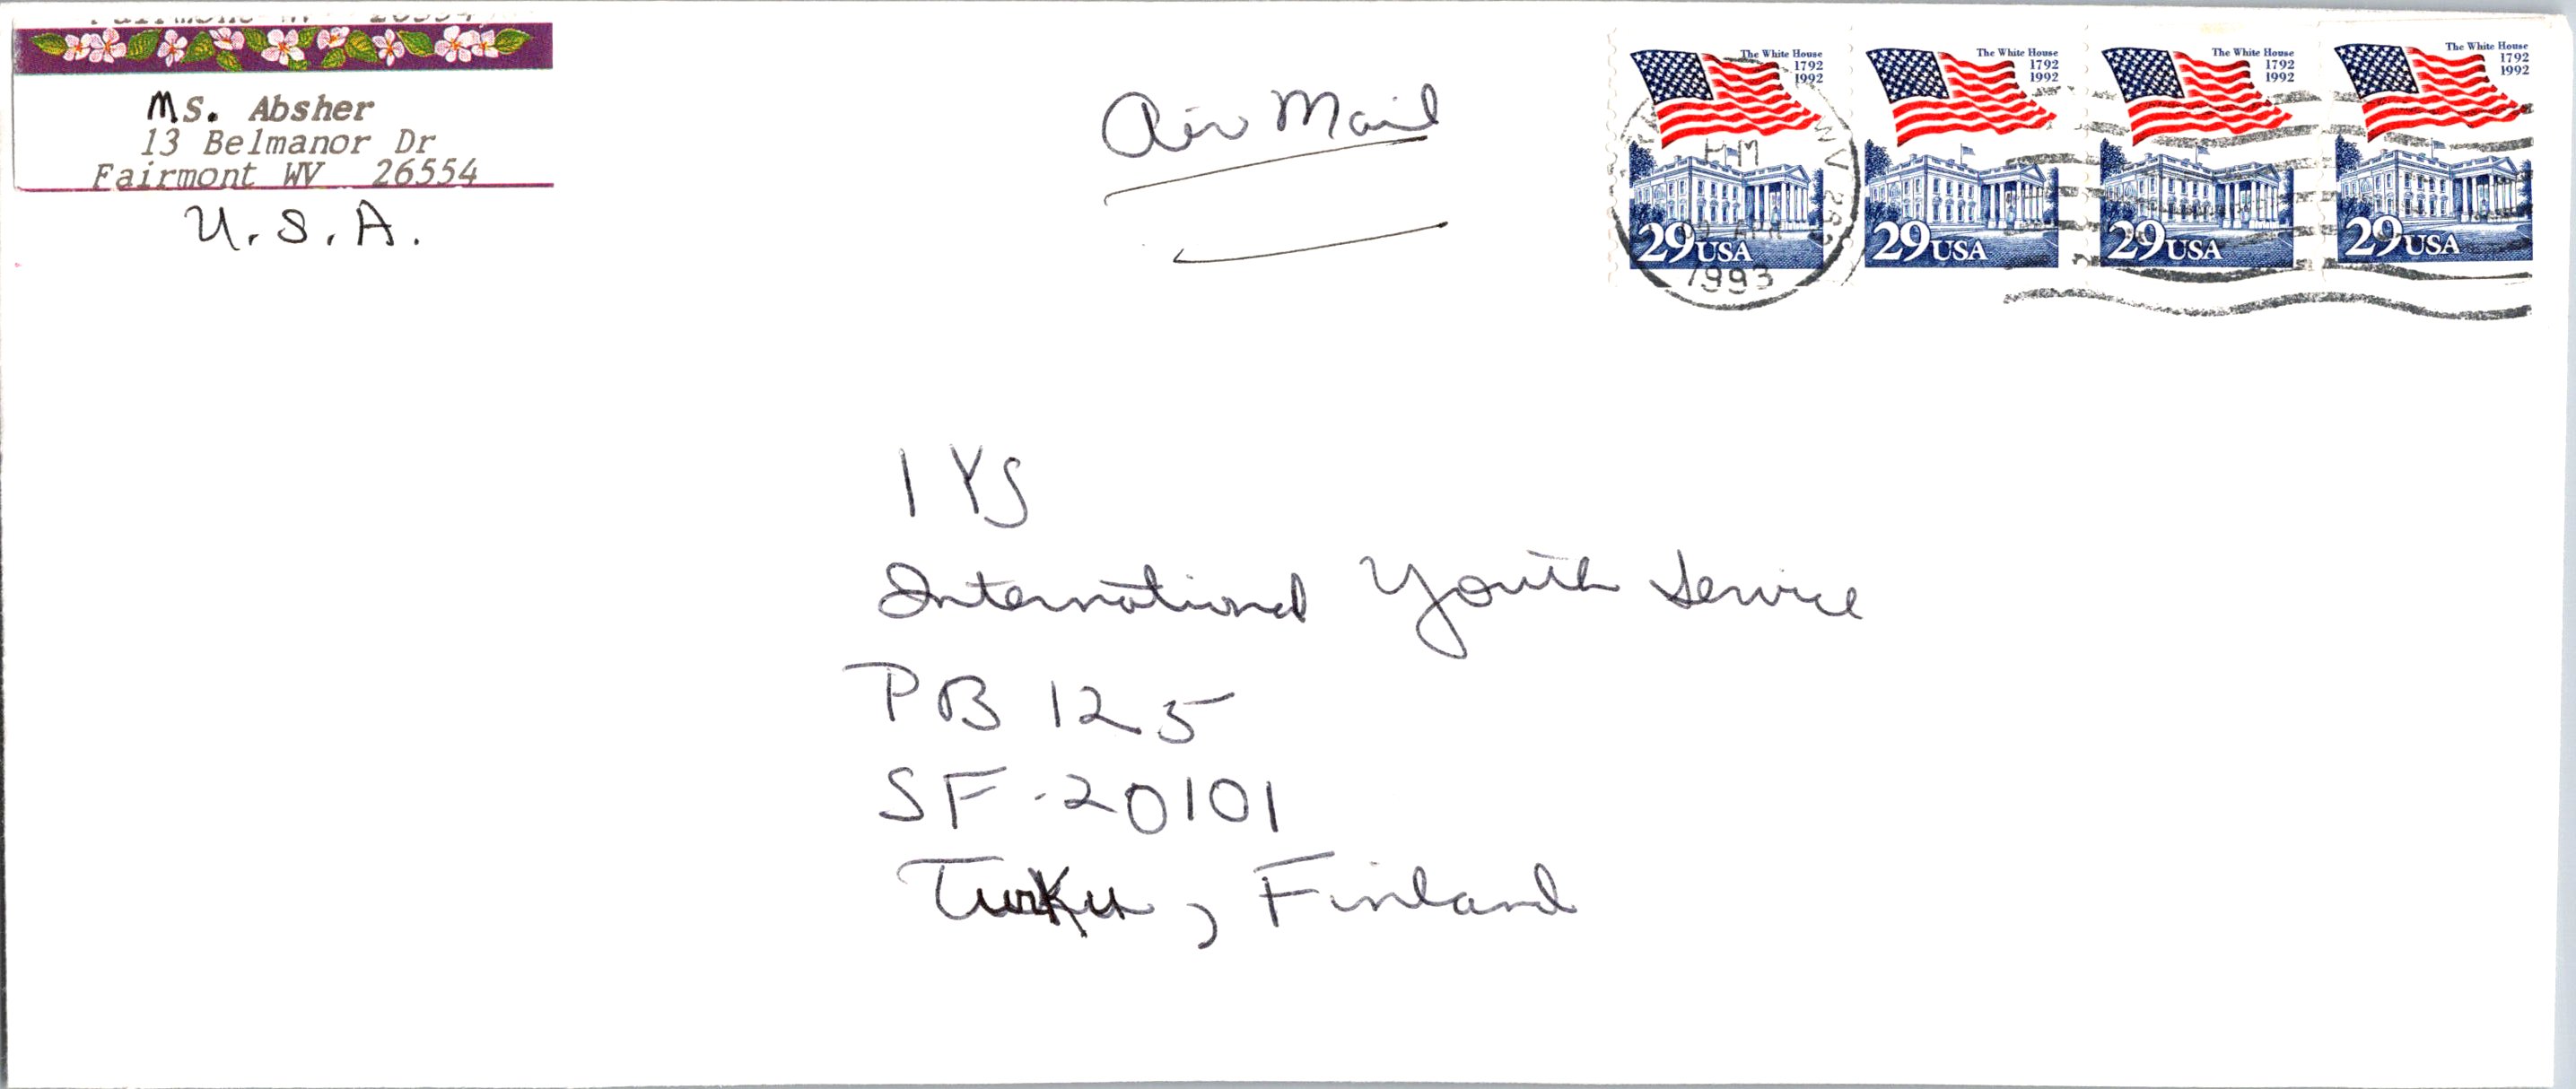 Ms. Absher
13 Belmanor Dr
Fairmont WV 26554
U.S.A.
Air Mail
The White House
1792
1992
29 USA
The White House
1792
1992
29 USA
The White House
1792
1992
29 USA
The White House
1792
1992
29 USA
WV
PM
APR
1993
IYS
International Youth Service
PB 125
SF-20101
Turku, Finland